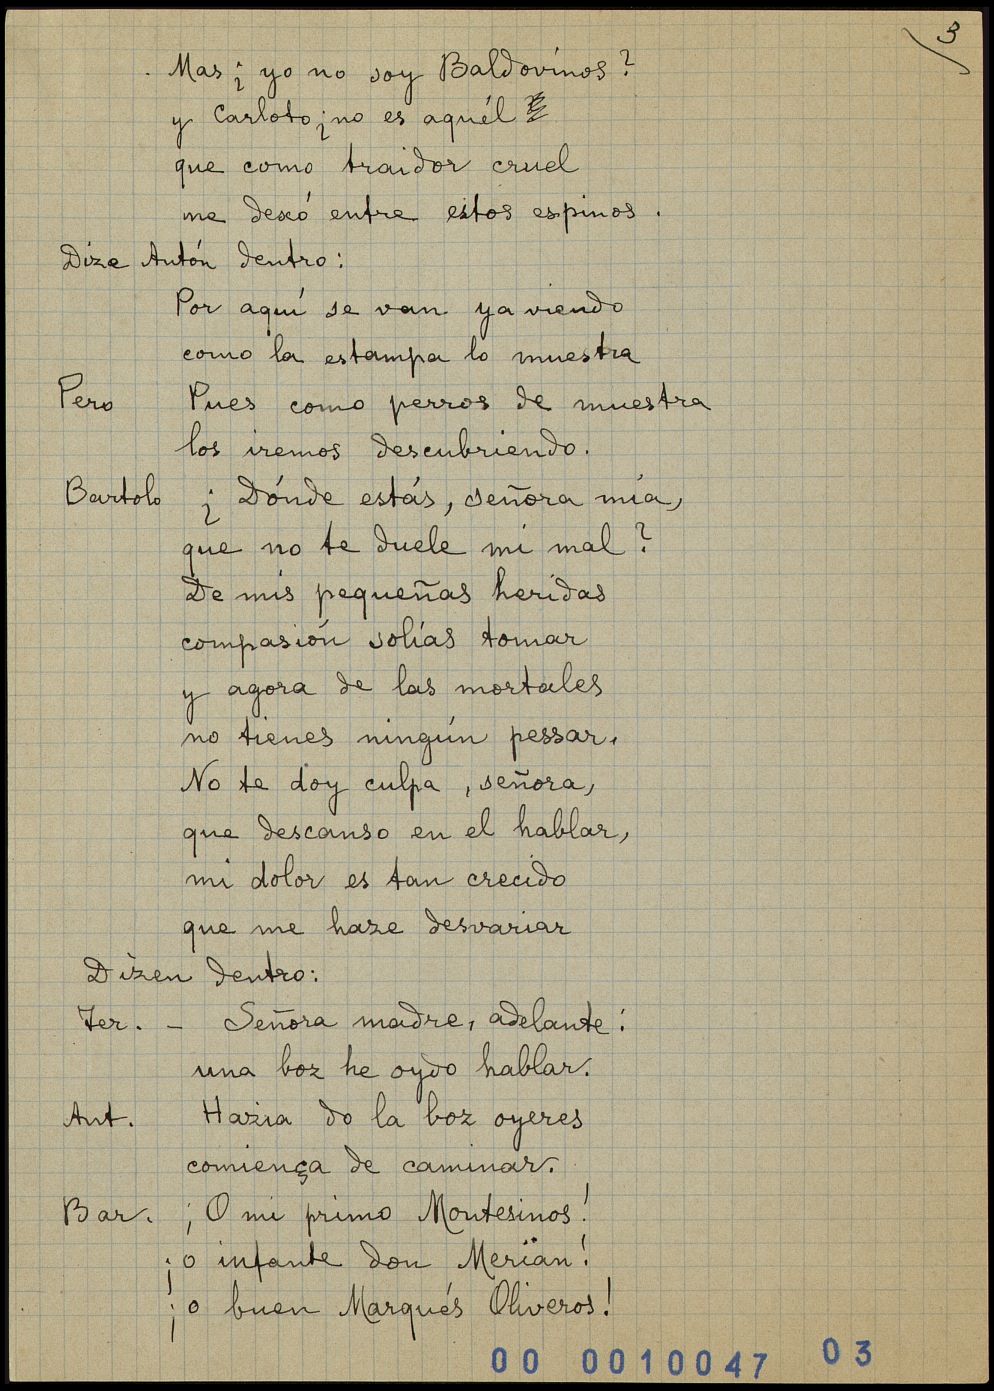 3
Mas ¿ yo no soy Baldovinos?
y Carloto ¿no es aquél
que como traidor cruel
me dexó entre estos espinos.
Dize Antón dentro:
Por aquí se van ya viendo
como la estampa lo muestra
Pero Pues como perros de muestra
los iremos descubriendo.
Bartolo ¿ Dónde estás, señora mía,
que no te duele mi mal?
De mis pequeñas heridas
compasión solías tomar
y agora de las mortales
no tienes ningún pessar.
No te doy culpa, señora,
que descanso en el hablar,
mi dolor es tan crecido
que me haze desvariar
Dizen dentro:
Ter. - Señora madre, adelante:
una boz he oydo hablar.
Ant. Hazia do la boz oyeres
comiença de caminar.
Bar. ¡O mi primo Montesinos!
¡o infante don Merian!
¡o buen Marqués Oliveros!
00 0010047 03